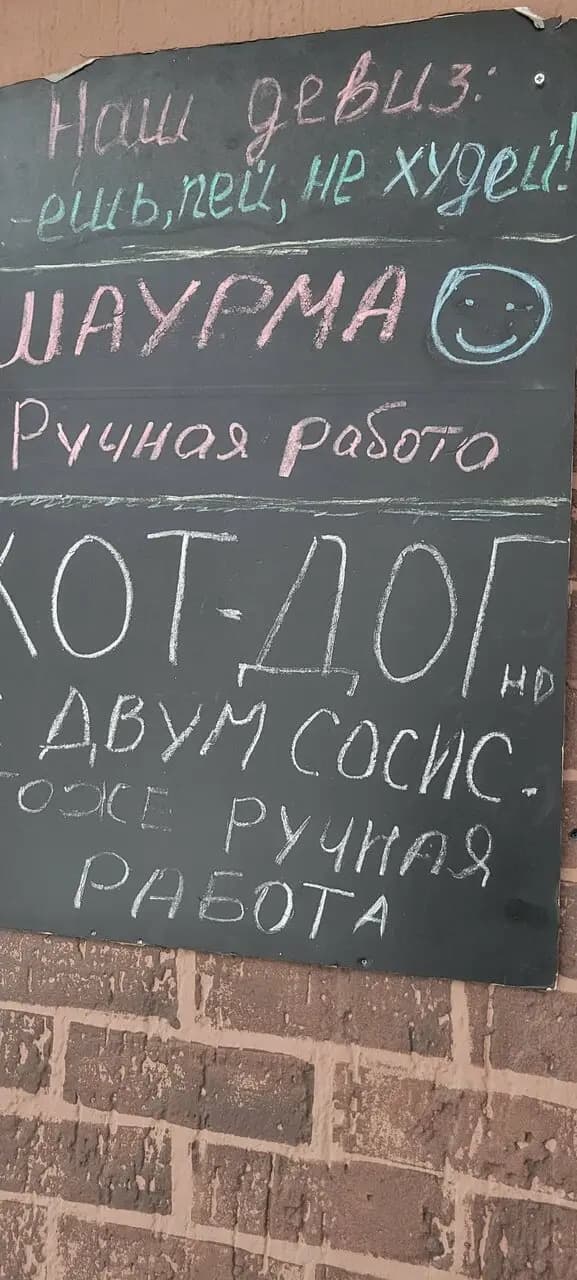 Наш девиз:
- ешь, пей, не худей!
ШАУРМА
Ручная работа
ХОТ-ДОГ HD
С ДВУМ СОСИС.
ТОЖЕ РУЧНАЯ
РАБОТА